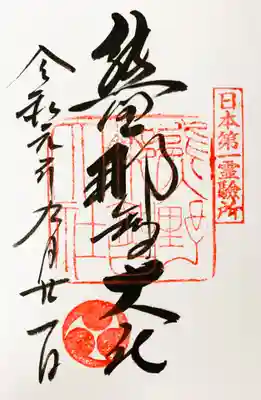 日本第一霊驗所
熊野那智大社
令和元年九月廿一日